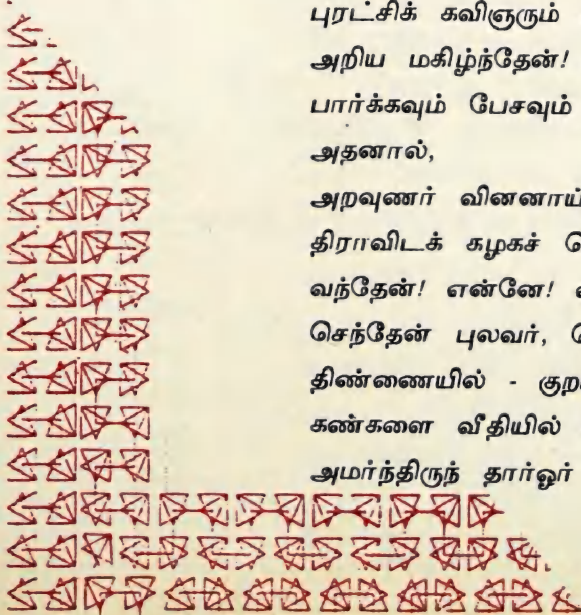 புரட்சிக் கவிஞரும்
அறிய மகிழ்ந்தேன்!
பார்க்கவும் பேசவும்
அதனால்,
அறவுணர் வினனாய்
திராவிடக் கழகச்
வந்தேன்! என்னே!
செந்தேன் புலவர்,
திண்ணையில் - குற
கண்களை வீதியில்
அமர்ந்திருந் தார்ஓர்